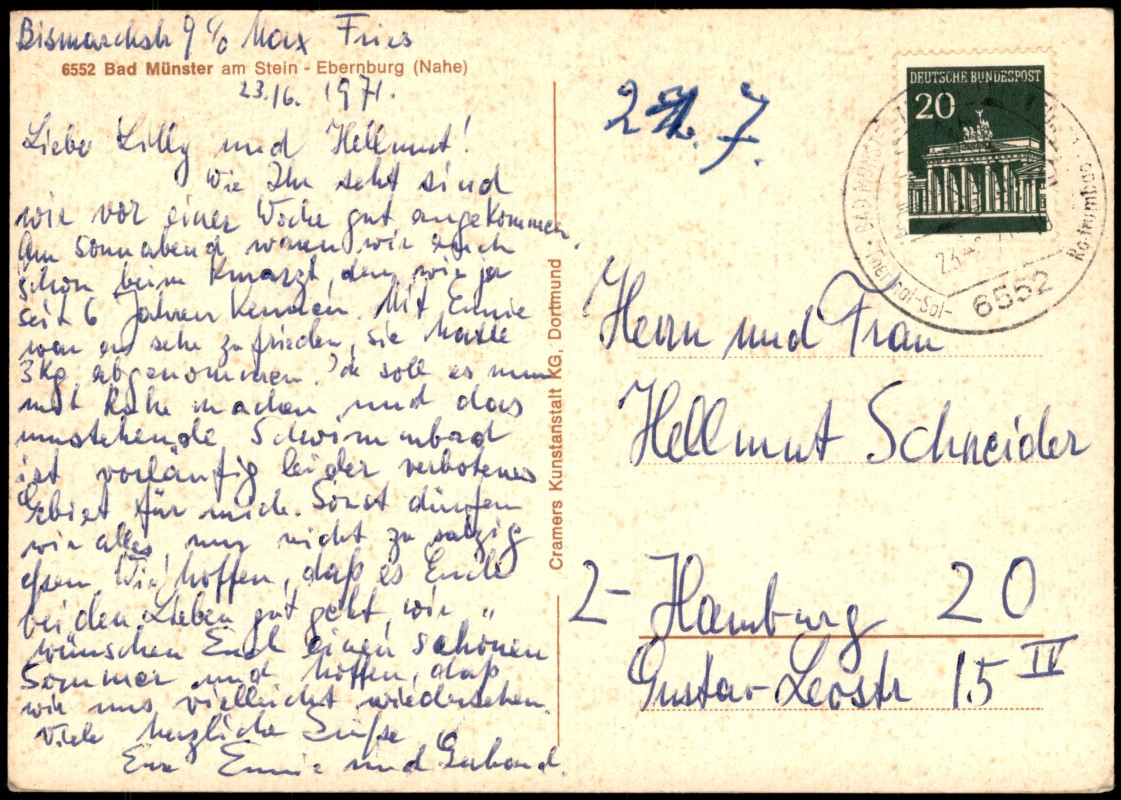 Bismarckstr 9 c/o Max Fries
6552 Bad Münster am Stein - Ebernburg (Nahe)
23.6. 1971.
Liebe Lilly und Hellmut!
Wie Ihr seht sind
wir vor einer Woche gut angekommen.
Am Sonnabend waren wir auch
schon beim Kurarzt, den wir ja
seit 6 Jahren kennen. Mit Ennie
war er sehr zufrieden, sie hatte
3 Kg abgenommen. Ich soll es nun
mit Ruhe machen und das
umstehende Schwimmbad
ist vorläufig leider verbotenes
Gebiet für mich. Sonst dürfen
wir alles, nur nicht zu salzig
essen. Wir hoffen, daß es Euch
beiden Lieben gut geht, wir
wünschen Euch einen schönen
Sommer und hoffen, daß
wir uns vielleicht wiedersehen.
Viele herzliche Grüße
Ennie und Gerhard.
Cramers Kunstanstalt KG, Dortmund
DEUTSCHE BUNDESPOST
20
BAD MÜNSTER
23.
6552
Herrn und Frau
Hellmut Schneider
2- Hamburg 20
Gustav-Leostr 15 IV